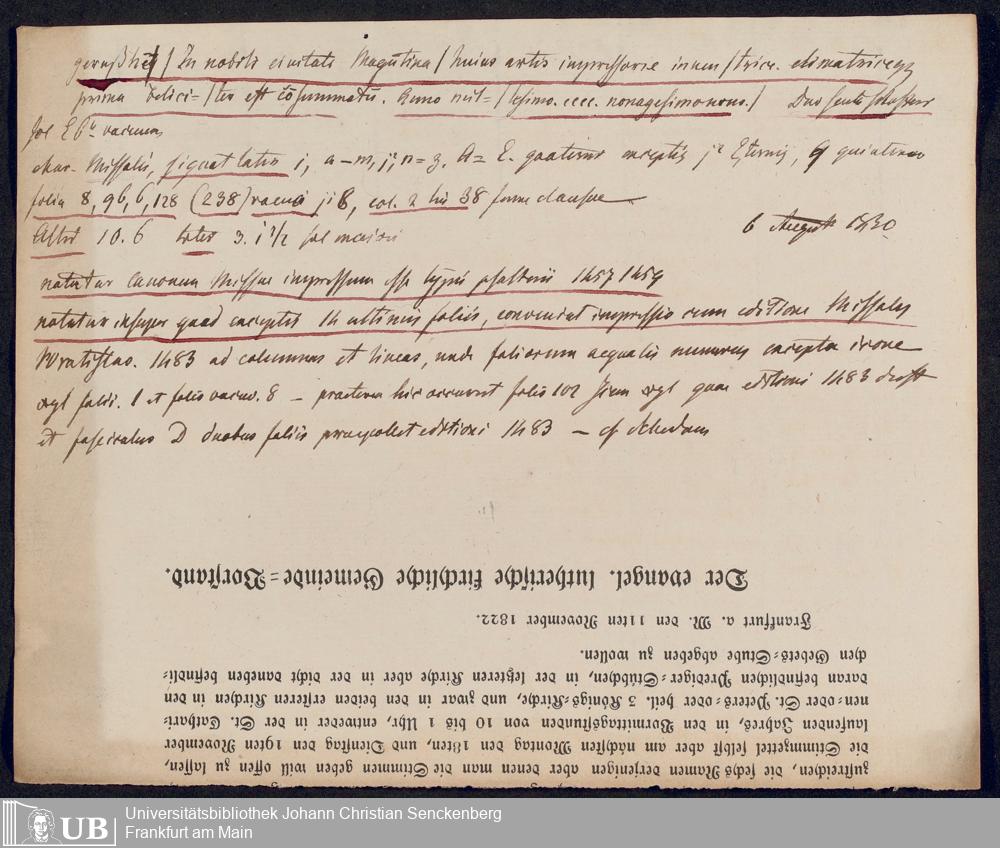 In nobili ciuitate Magutina / huius artis impressorie inuen / trice. elimatriceqz
prima delici= / ter est cōsummatū. Anno mil= / lesimo. cccc. nonagesimonono. / Duo scuta
fol vacuum
char. Missalis, signat latio i, a – m, n = z. A = E. quaterni exceptis quinternio
folia 8, 96, 6, 128 (238) vacui col. 2 lin 38 forme clausae
Altit 10.6 latit 3. 1 1/2 fol maioris 6 August 1830
notatur Canonem Missae impressum esse typis psalterii 1457 1459
notatur insuper quod exceptis 14 ultimis foliis, conveniat impressio cum editione Missales
Wratislav. 1483 ad columnas et lineas, unde foliorum aequalis numerus excepta icone
xyl foliis. 1 et foliis vacuo. 8 – praeterea hic occurrit folio 102 xyl quae editioni 1483 deest
et fasciculus D duobus foliis editioni 1483 – cf schedam
zustreichen, die sechs Namen derjenigen aber denen man die Stimmen geben will offen zu lassen,
die Stimmzettel selbst aber am nächsten Montag den 18ten, und Dienstag den 19ten November
laufenden Jahres, in den Vormittagsstunden von 10 bis 1 Uhr, entweder in der St. Cathari-
nen- oder St. Peters- oder heil. 3. Königs-Kirche, und zwar in den beiden ersteren Kirchen in den
daran befindlichen Prediger-Stübchen, in der letzteren Kirche aber in der dicht daneben befindli-
chen Gebets-Stube abgeben zu wollen.
Frankfurt a. M. den 11ten November 1822.
Der evangel. lutherische kirchliche Gemeinde-Vorstand.
UB
Universitätsbibliothek Johann Christian Senckenberg
Frankfurt am Main